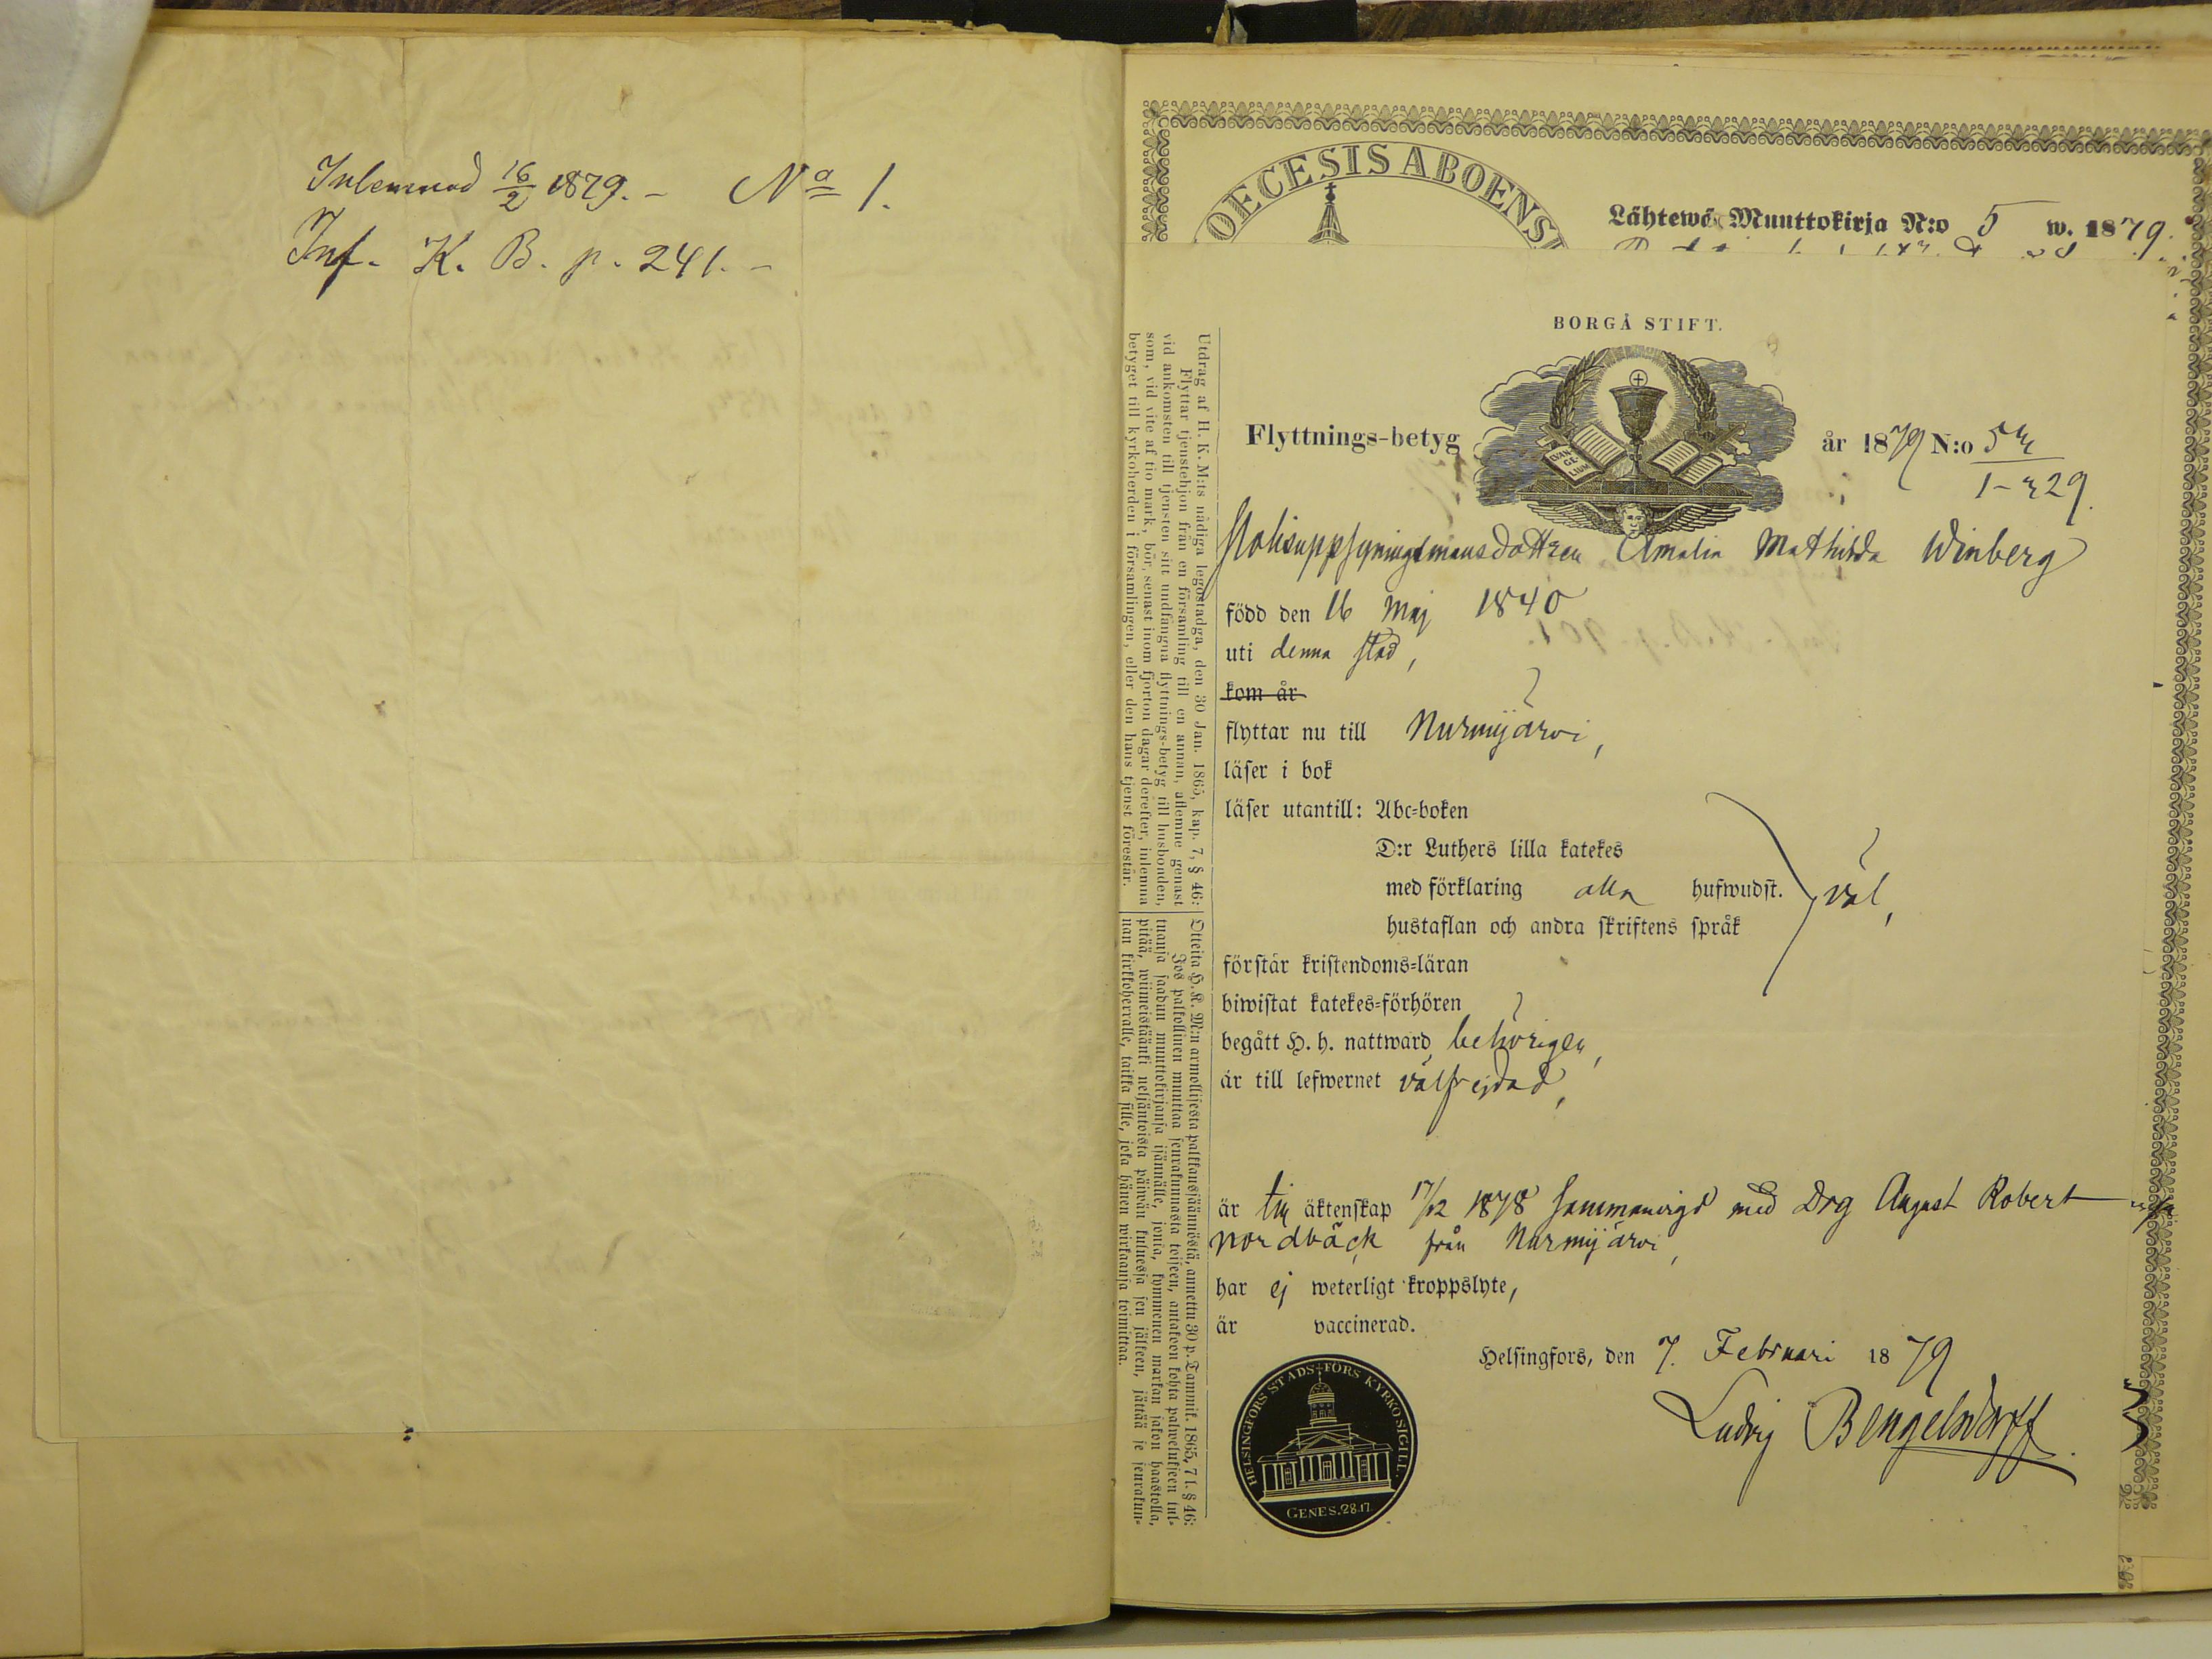 Inlemnad 16/2 1879. – No 1.
Inf. K. B. p. 241. –
OECESIS ABOENSI
Lähtewä Muuttokirja N:o 5 w. 1879.
BORGÅ STIFT.
EVAN-
GE-
LIUM
Flyttnings-betyg år 1879 N:o
Amalia Mathilda Winberg
född den 16 Maj 1840
uti denna stad,
kom år
flyttar nu till Nurmijärvi,
läser i bok
läser utantill: Abc-boken
D:r Luthers lilla katekes
med förklaring alla hufwudst. väl,
hustaflan och andra skriftens språk
förstår kristendoms-läran
biwistat katekes-förhören
begått H. h. nattward behörigen,
är till lefwernet välfrejdad,
är till äktenskap 17/12 1878 sammanvigd med Drg August Robert
Nordbäck från Nurmijärvi,
har ej weterligt kroppslyte,
är vaccinerad.
Helsingfors, den 7. Februari 1879
Ludvig Bengelsdorff.
HELSINGFORS STADS-FÖRS KYRKO SIGILL.
GENES. 28.17.
Utdrag af H. K. M:ts nådiga legostadga, den 30 Jan. 1865, kap. 7, § 46:
Flyttar tjenstehjon från en församling till en annan, aflemne genast
vid ankomsten till tjensten sitt undfångna flyttnings-betyg till husbonden,
som, vid vite af tio mark, bör, senast inom fjorton dagar derefter, inlemna
betyget till kyrkoherden i församlingen, eller den hans tjenst förestår.
Otteita H. K. M:n armollisesta palkkaussäännöstä, annettu 30 p. Tammik. 1865, 7 l. § 46:
Jos palkollinen muuttaa seurakunnasta toiseen, antakoon kohta palwelukseen tul-
tuansa saadun muuttokirjansa isännälle, jonka, kymmenen markan sakon haastolla,
pitää, wiimeistäänki neljäntoista päiwän kuluessa sen jälkeen, jättää se seurakun-
nan kirkkoherralle, taikka sille, joka hänen wirkaansa toimittaa.